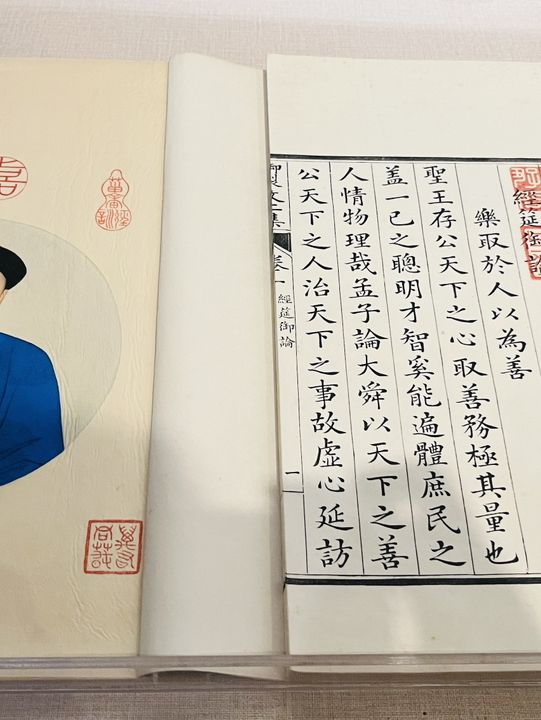 經筵御論
樂取於人以為善
聖王存公天下之心取善務極其量也
蓋一已之聰明才智奚能遍體庶民之
人情物理哉孟子論大舜以天下之善
公天下之人治天下之事故虛心延訪
御製文集 卷一 經筵御論 一